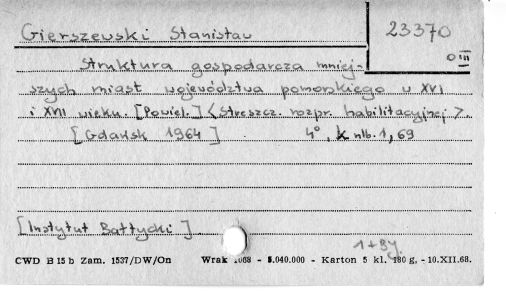 Gierszewski Stanisław
23370
0 III
Struktura gospodarcza mniej-
szych miast województwa pomorskiego w XVI
i XVII wieku. [Powiel.] <Streszcz. rozpr. habilitacyjnej>.
[Gdańsk 1964] 4°, k nlb. 1, 69
[Instytut Bałtycki]
CWD B 15 b Zam. 1537/DW/On Wrak 1068 - 5.040.000 - Karton 5 kl. 180 g. - 10.XII.68.